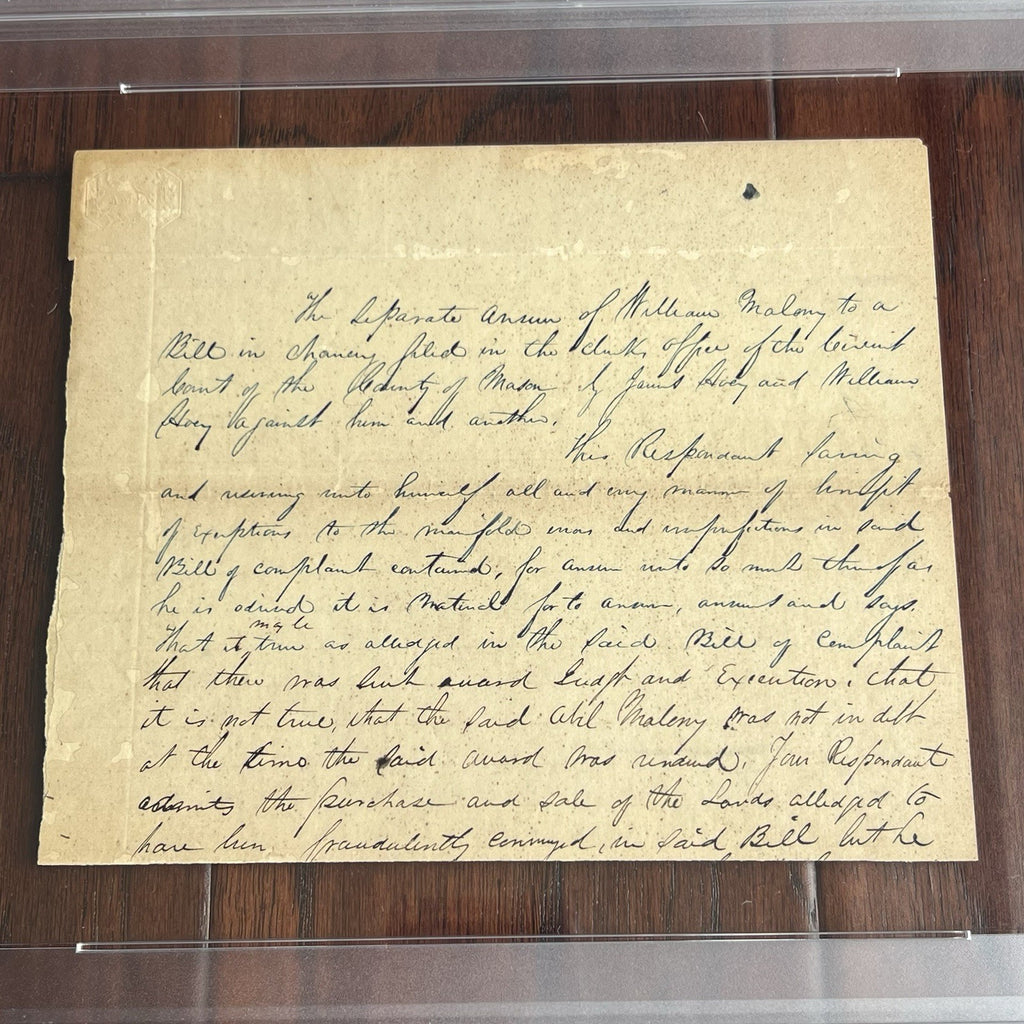 The Separate Answer of William Malony to a
Bill in chancery filed in the clerks office of the Circuit
Court of the County of Mason by James Hoey and William
Hoey against him and another.
This Respondant Saving
and reserving unto himself all and every manner of benefit
of exceptions to the manifold errors and imperfections in said
Bill of complaint contained, for answer unto so much thereof as
he is advised it is Material for to answer, answers and says.
That it may be true as alledged in the Said Bill of Complaint
that there was Such award Judgt and Execution. that
it is not true, that the said Abil Malony was not in debt
at the time the said award was rendered. Your Respondant
admits the purchase and sale of the Lands alledged to
have been fraudulently conveyed, in said Bill but he